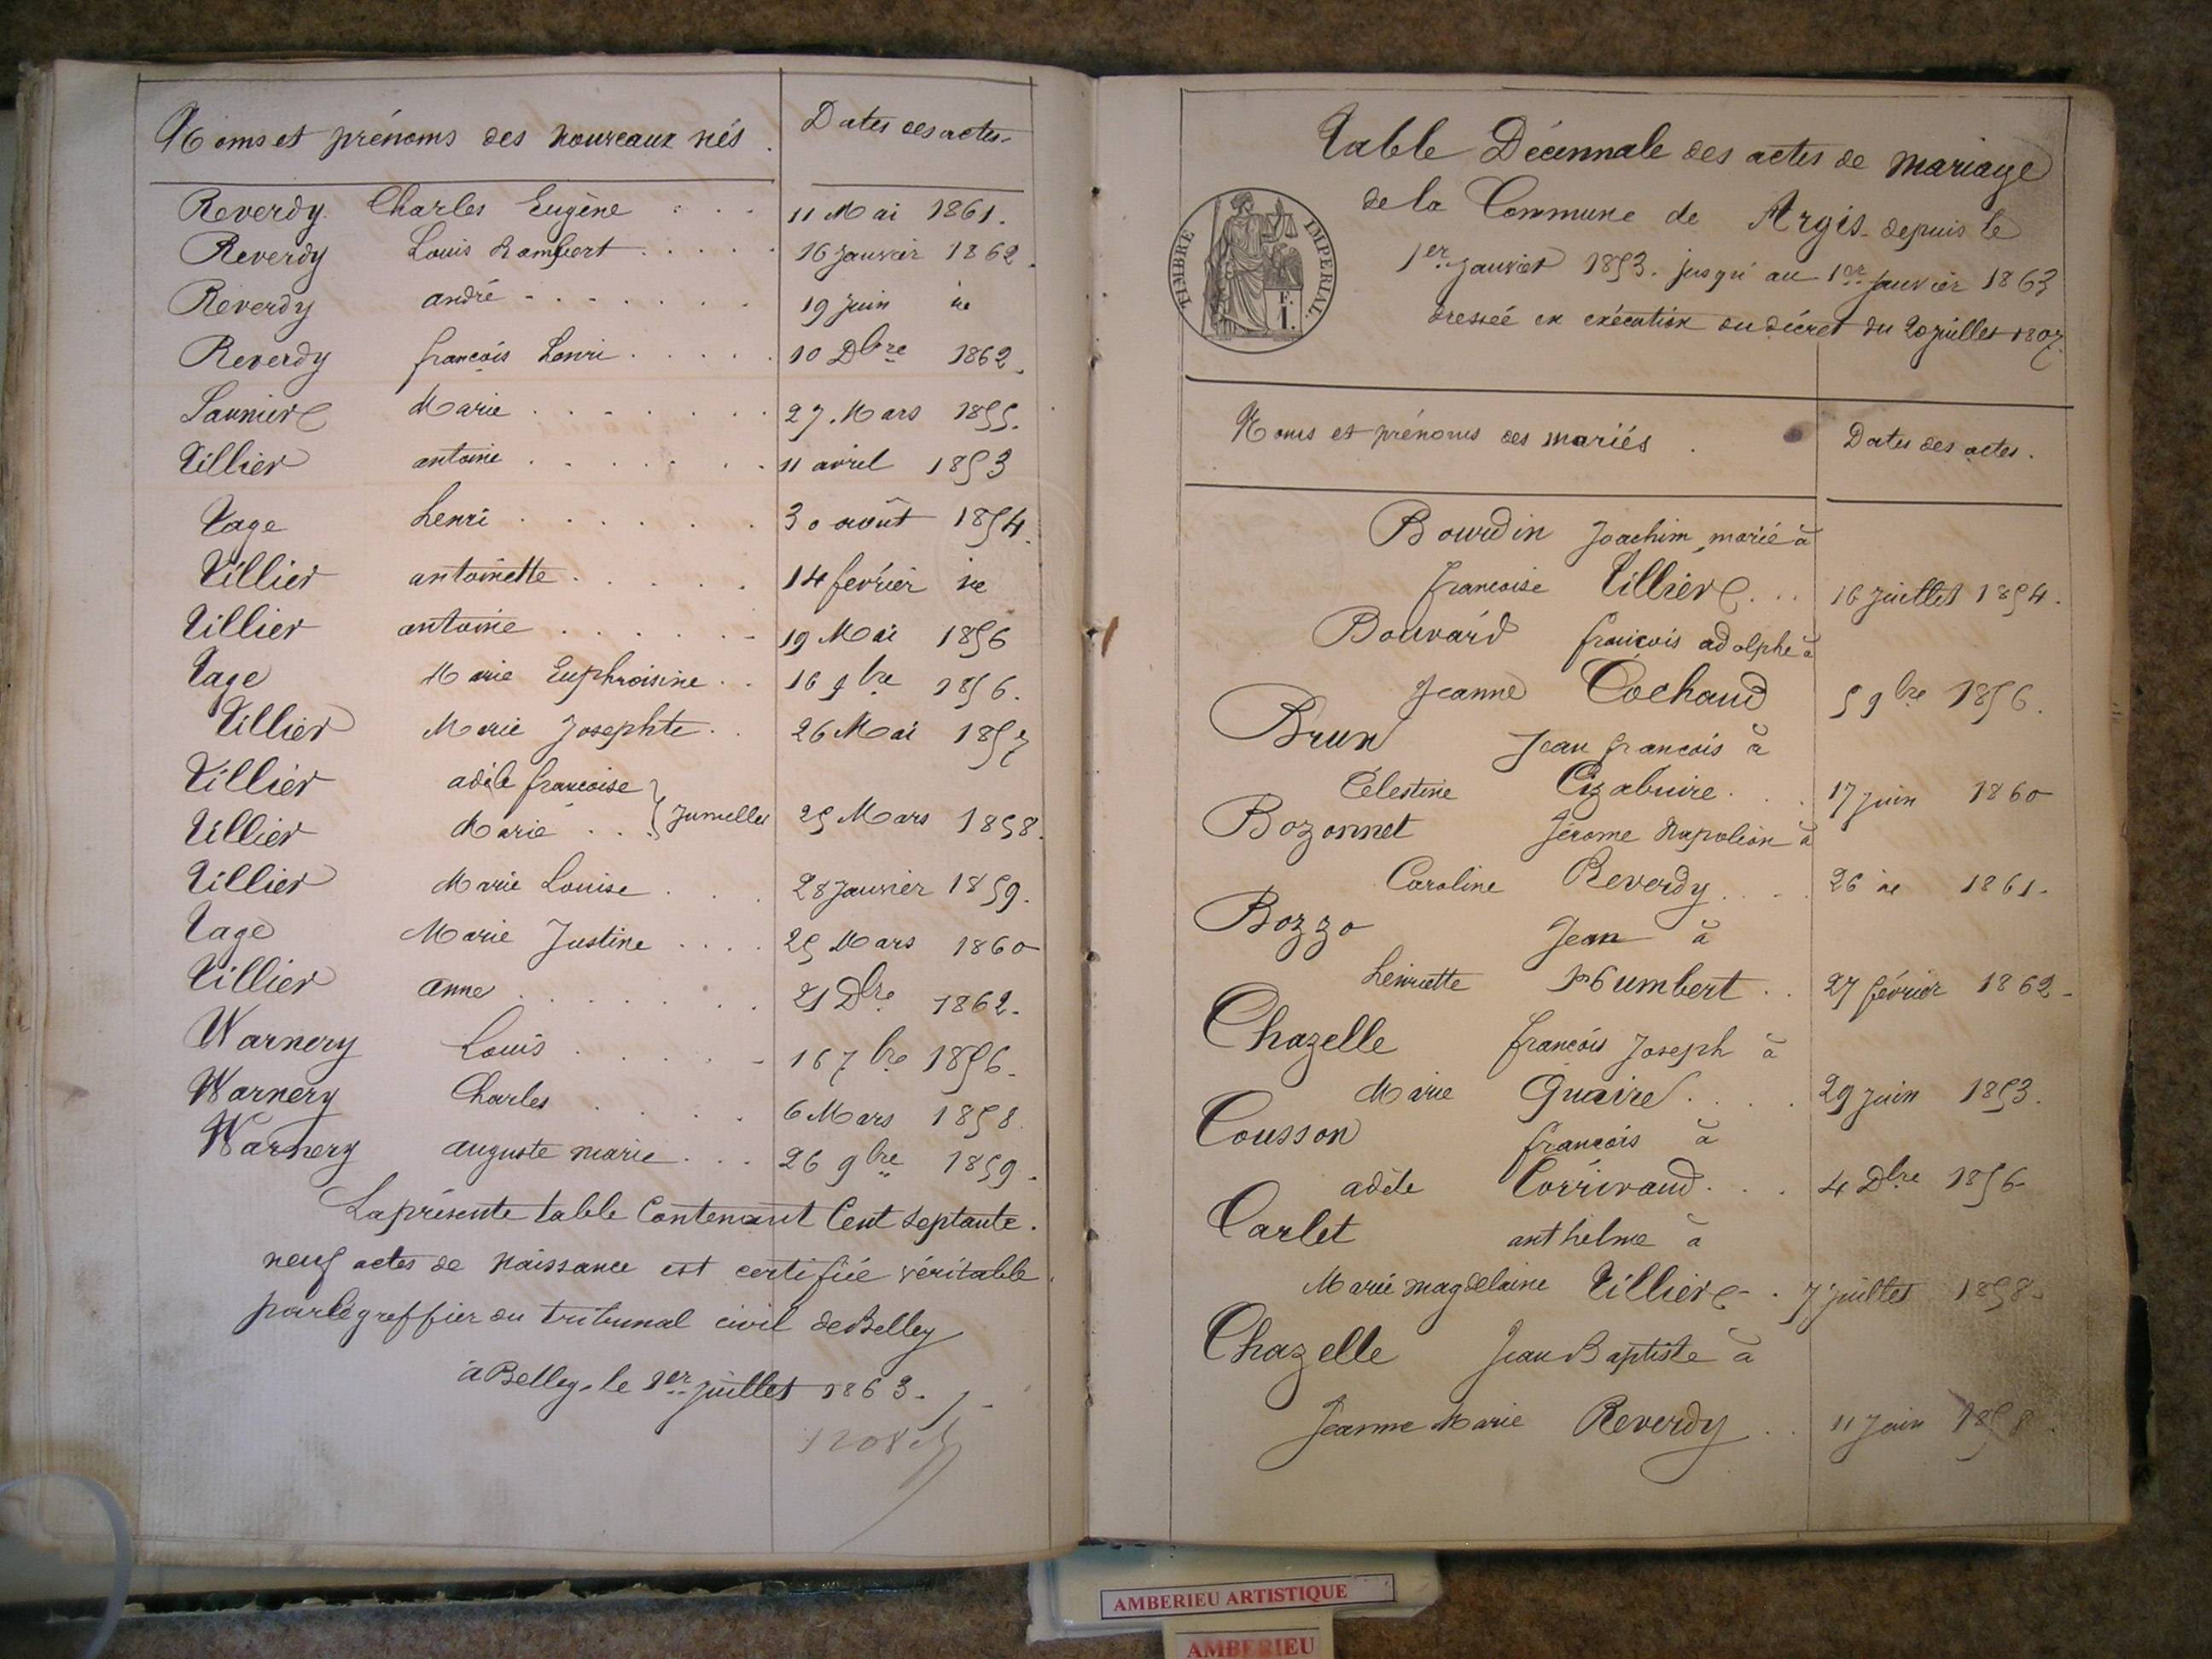 Noms et prénoms des nouveaux nés. Dates des actes.
Reverdy Charles Eugène . . . 11 Mai 1861.
Reverdy Louis Rambert . . . . . 16 janvier 1862.
Reverdy andré - . - . . . . 19 juin ie
Reverdy françois henri . . . . . 10 Dbre 1862.
Saunier Marie . . . . . . . 27. Mars 1855.
Tillier antoine . . . . . . . 11 avril 1853
Tage henri . . . . . . 30 août 1854.
Tillier antoinette . . . . . 14 février ie
Tillier antoine . . . . . . - 19 Mai 1856
Tage Marie Euphroisine . . 16 9bre 1856.
Tillier Marie Josephte . . 26 Mai 1857
Tillier adèle françoise
Tillier Marie . . . } Jumelles 25 Mars 1858.
Tillier Marie Louise . . . 28 Janvier 1859.
Tage Marie Justine . . . . 25 Mars 1860
Tillier anne . . . . . . . 21 Dbre 1862.
Warnery Louis . . . . . - 16 7bre 1856.
Warnery Charles . . . . 6 Mars 1858.
Warnery auguste marie . . . 26 9bre 1859.
La présente table Contenant Cent septante.
neuf actes de naissance est certifiée véritable
par le greffier du tribunal civil de Belley
à Belley, le 1er juillet 1863.
Table Décennale des actes de mariage
de la Commune de Argis depuis le
1er janvier 1853. jusqu'au 1er janvier 1863
dressée en exécution du décret du 20 juillet 1807.
TIMBRE IMPERIAL.
F.
I.
Noms et prénoms des mariés. Dates des actes.
Bourdin Joachim, marié à
françoise Tillier . . . 16 juillet 1854.
Bouvard françois adolphe à
Jeanne Cochaud 5 9bre 1856.
Brun Jean françois à
Célestine Cizabuire . . . 17 juin 1860
Bozonnet Jérome Napoléon à
Caroline Reverdy . . . . 26 ie 1861.
Bozzo Jean à
henriette Humbert . . 27 février 1862.
Chazelle françois Joseph à
Marie Guaire . . . . 29 juin 1853.
Cousson françois à
adèle Corrivaud . . . 4 Dbre 1856
Carlet anthelme à
Marie magdelaine Tillier . 7 juillet 1858.
Chazelle Jean Baptiste à
Jeanne Marie Reverdy . . 11 Juin 1858.
AMBERIEU ARTISTIQUE
AMBERIEU